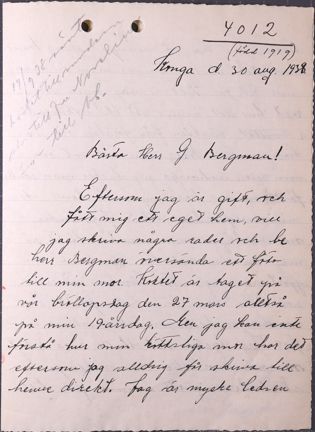 4012
(född 1919)
Konga d. 30 aug. 1938
19/9 38
till
Bästa Herr G Bergman!
Eftersom jag är gift, och
fått mig ett eget hem, vill
jag skriva några rader och be
herr Bergman översända ett foto
till min mor. Kortet är taget på
vår bröllopsdag den 27 mars alltså
på min 19 årsdag. Men jag kan inte
förstå hur min köttsliga mor har det
eftersom jag alldrig får skriva till
henne direkt. Jag är mycke ledsen